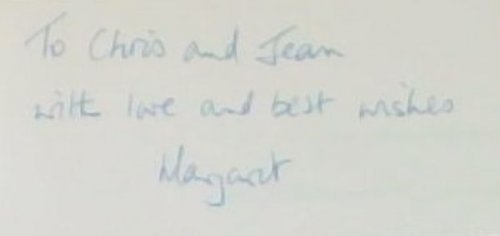 To Chris and Jean
with love and best wishes
Margaret